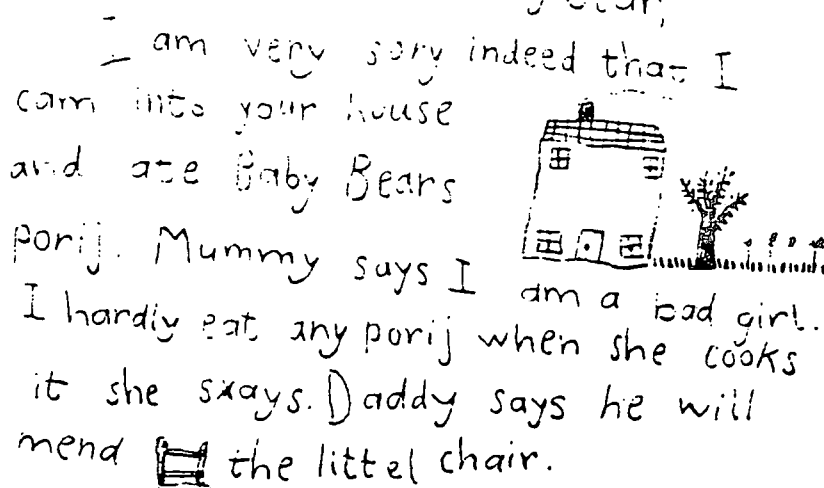 I am very sory indeed that I
cam into your house
and ate Baby Bears
porij. Mummy says I am a bad girl.
I hardly eat any porij when she cooks
it she sxays. Daddy says he will
mend the littel chair.